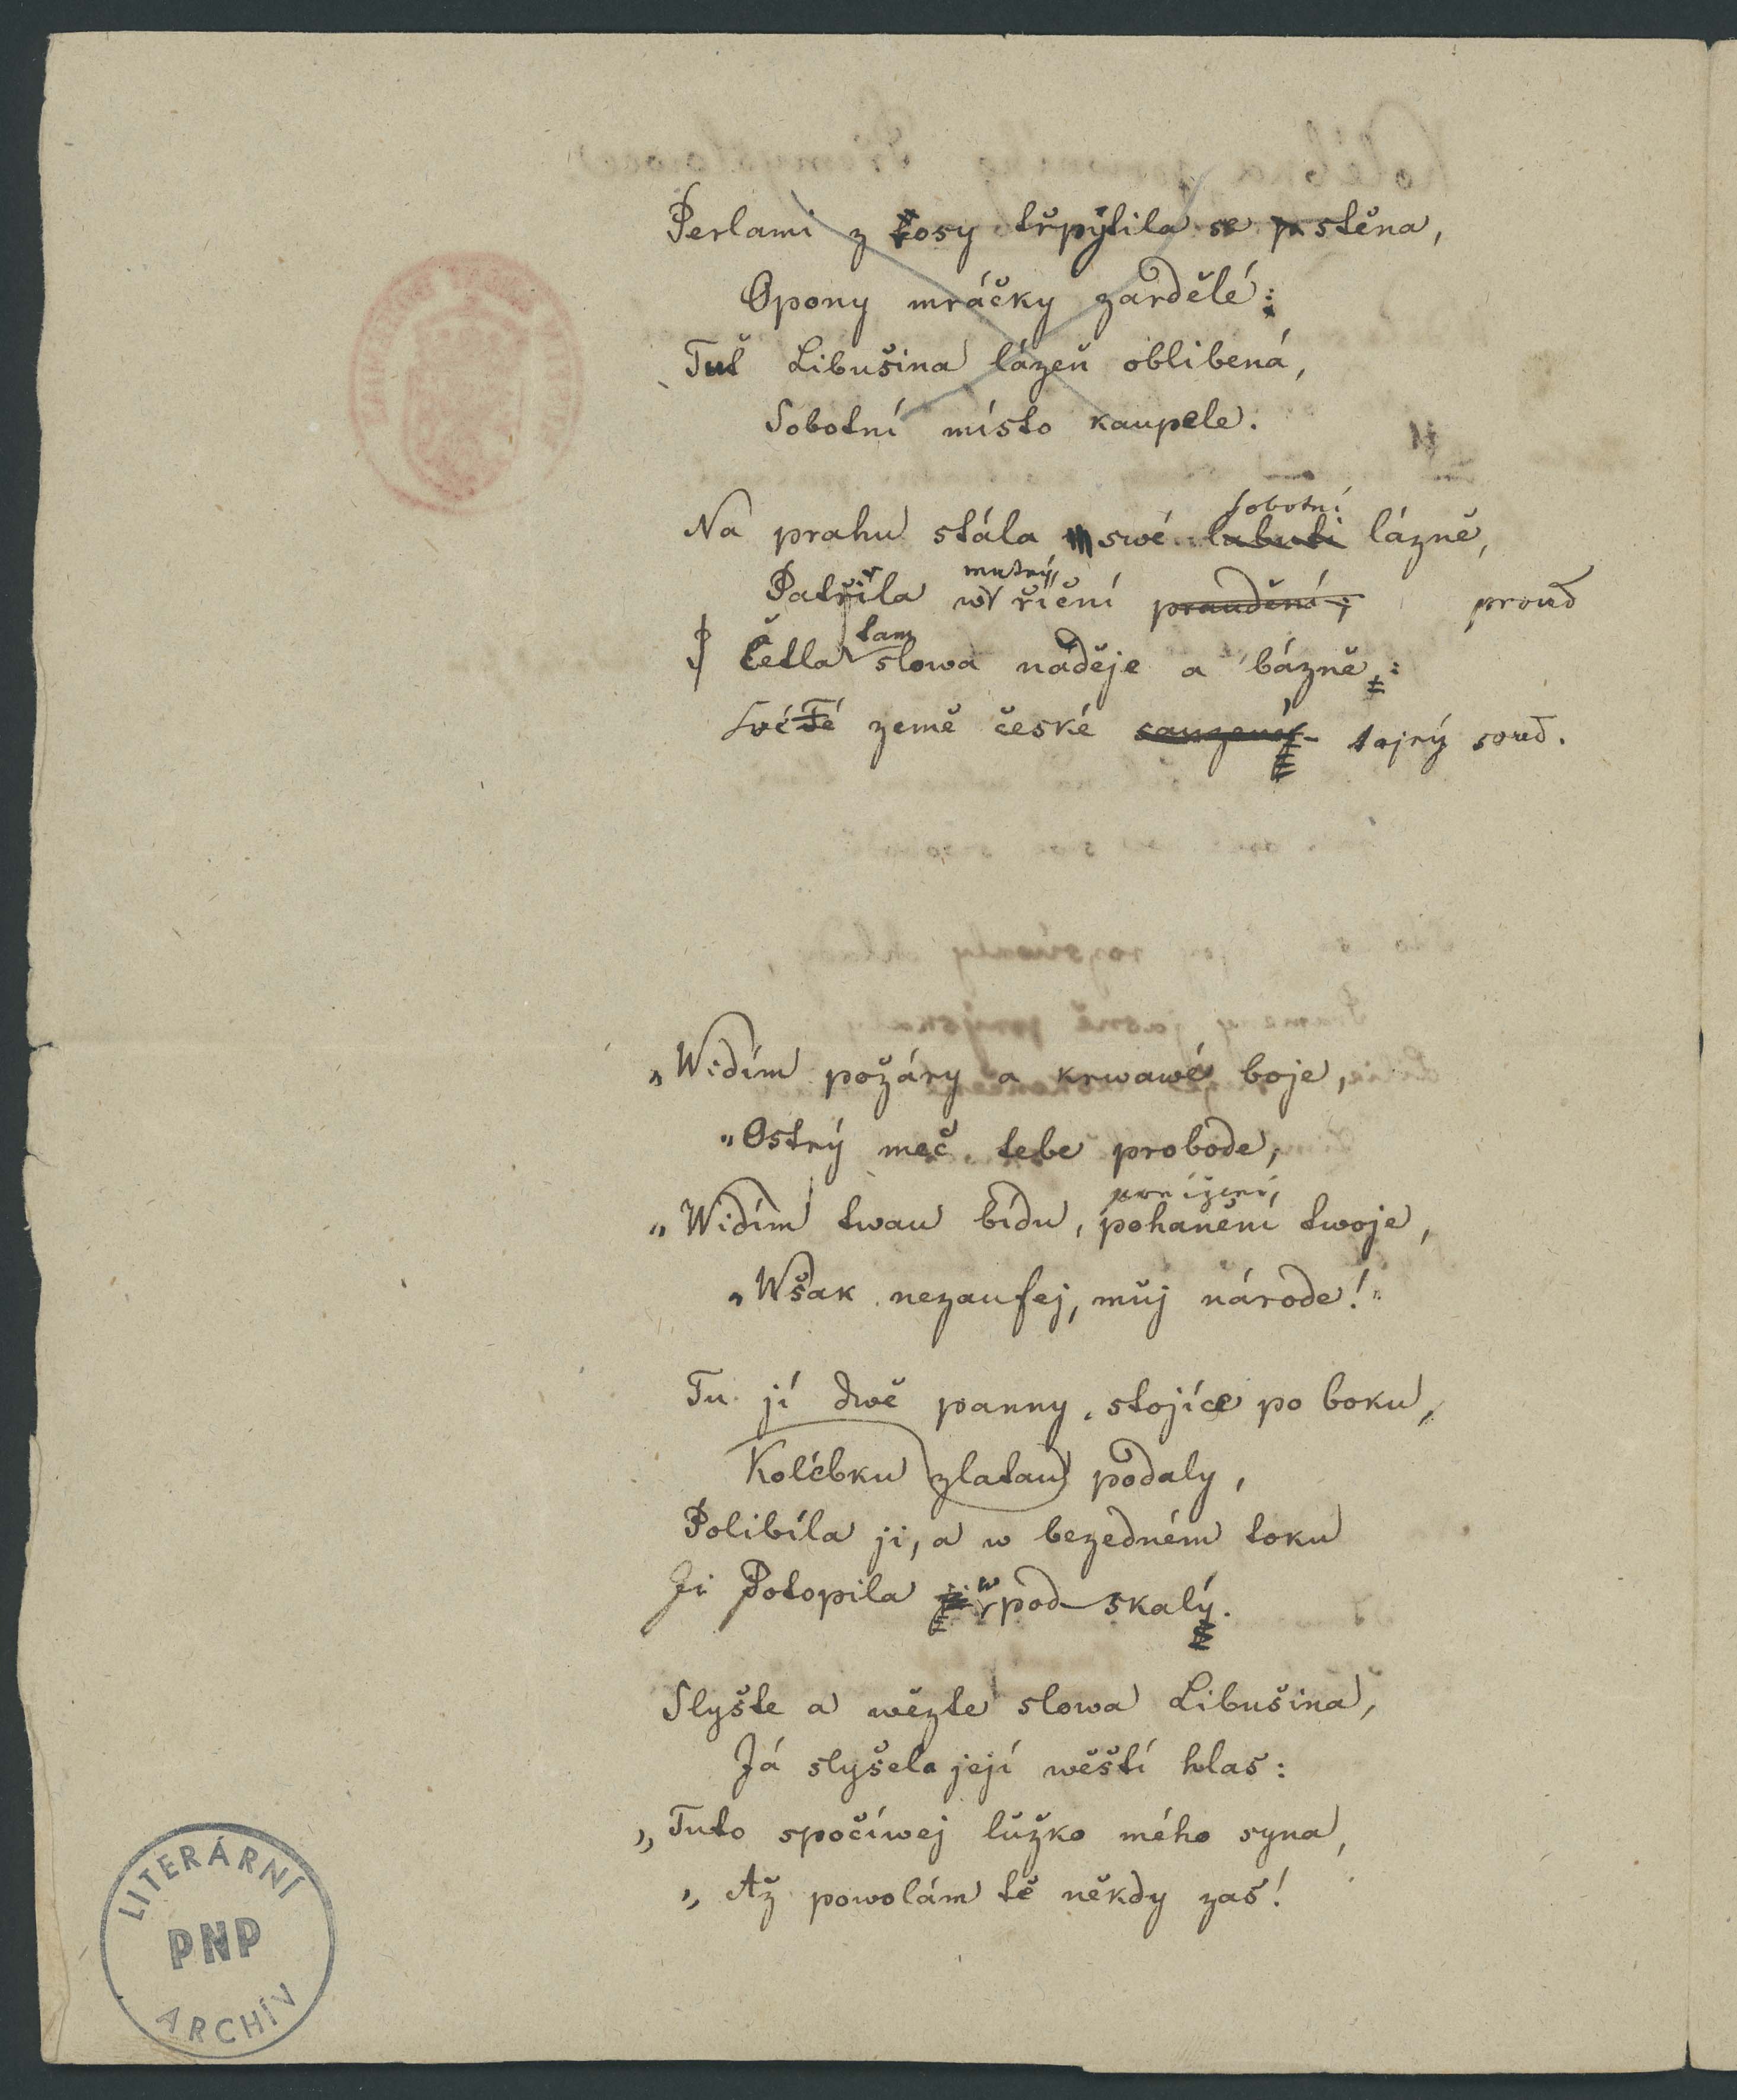 Perlami z rosy třpytila se stěna,
Opony mráčky zardělé:
Tuť Libušina lázeň oblibená,
Sobotní místo kaupele.
sobotní
Na prahu stála swé labuti lázně,
mutný
Patřila w říční praudění; proud
tam
Četla slowa naděje a bázně:
Swé Té země české sauzení tajný soud.
„Widím požáry a krwawé boje,
„Ostrý meč tebe probode,
ponížení,
„Widím twau bídu, pohanění twoje,
„Wšak nezaufej, můj národe!"
Tu jí dwě panny, stojíce po boku,
Kolébku zlatau podaly,
Polibíla ji, a w bezedném toku
Ji Potopila ji w pod skalý.
Slyšte a wězte slowa Libušina,
Já slyšela její wěští hlas:
„Tuto spočíwej lůžko mého syna,
„Až powolám tě někdy zas!
LITERÁRNÍ
PNP
ARCHÍV